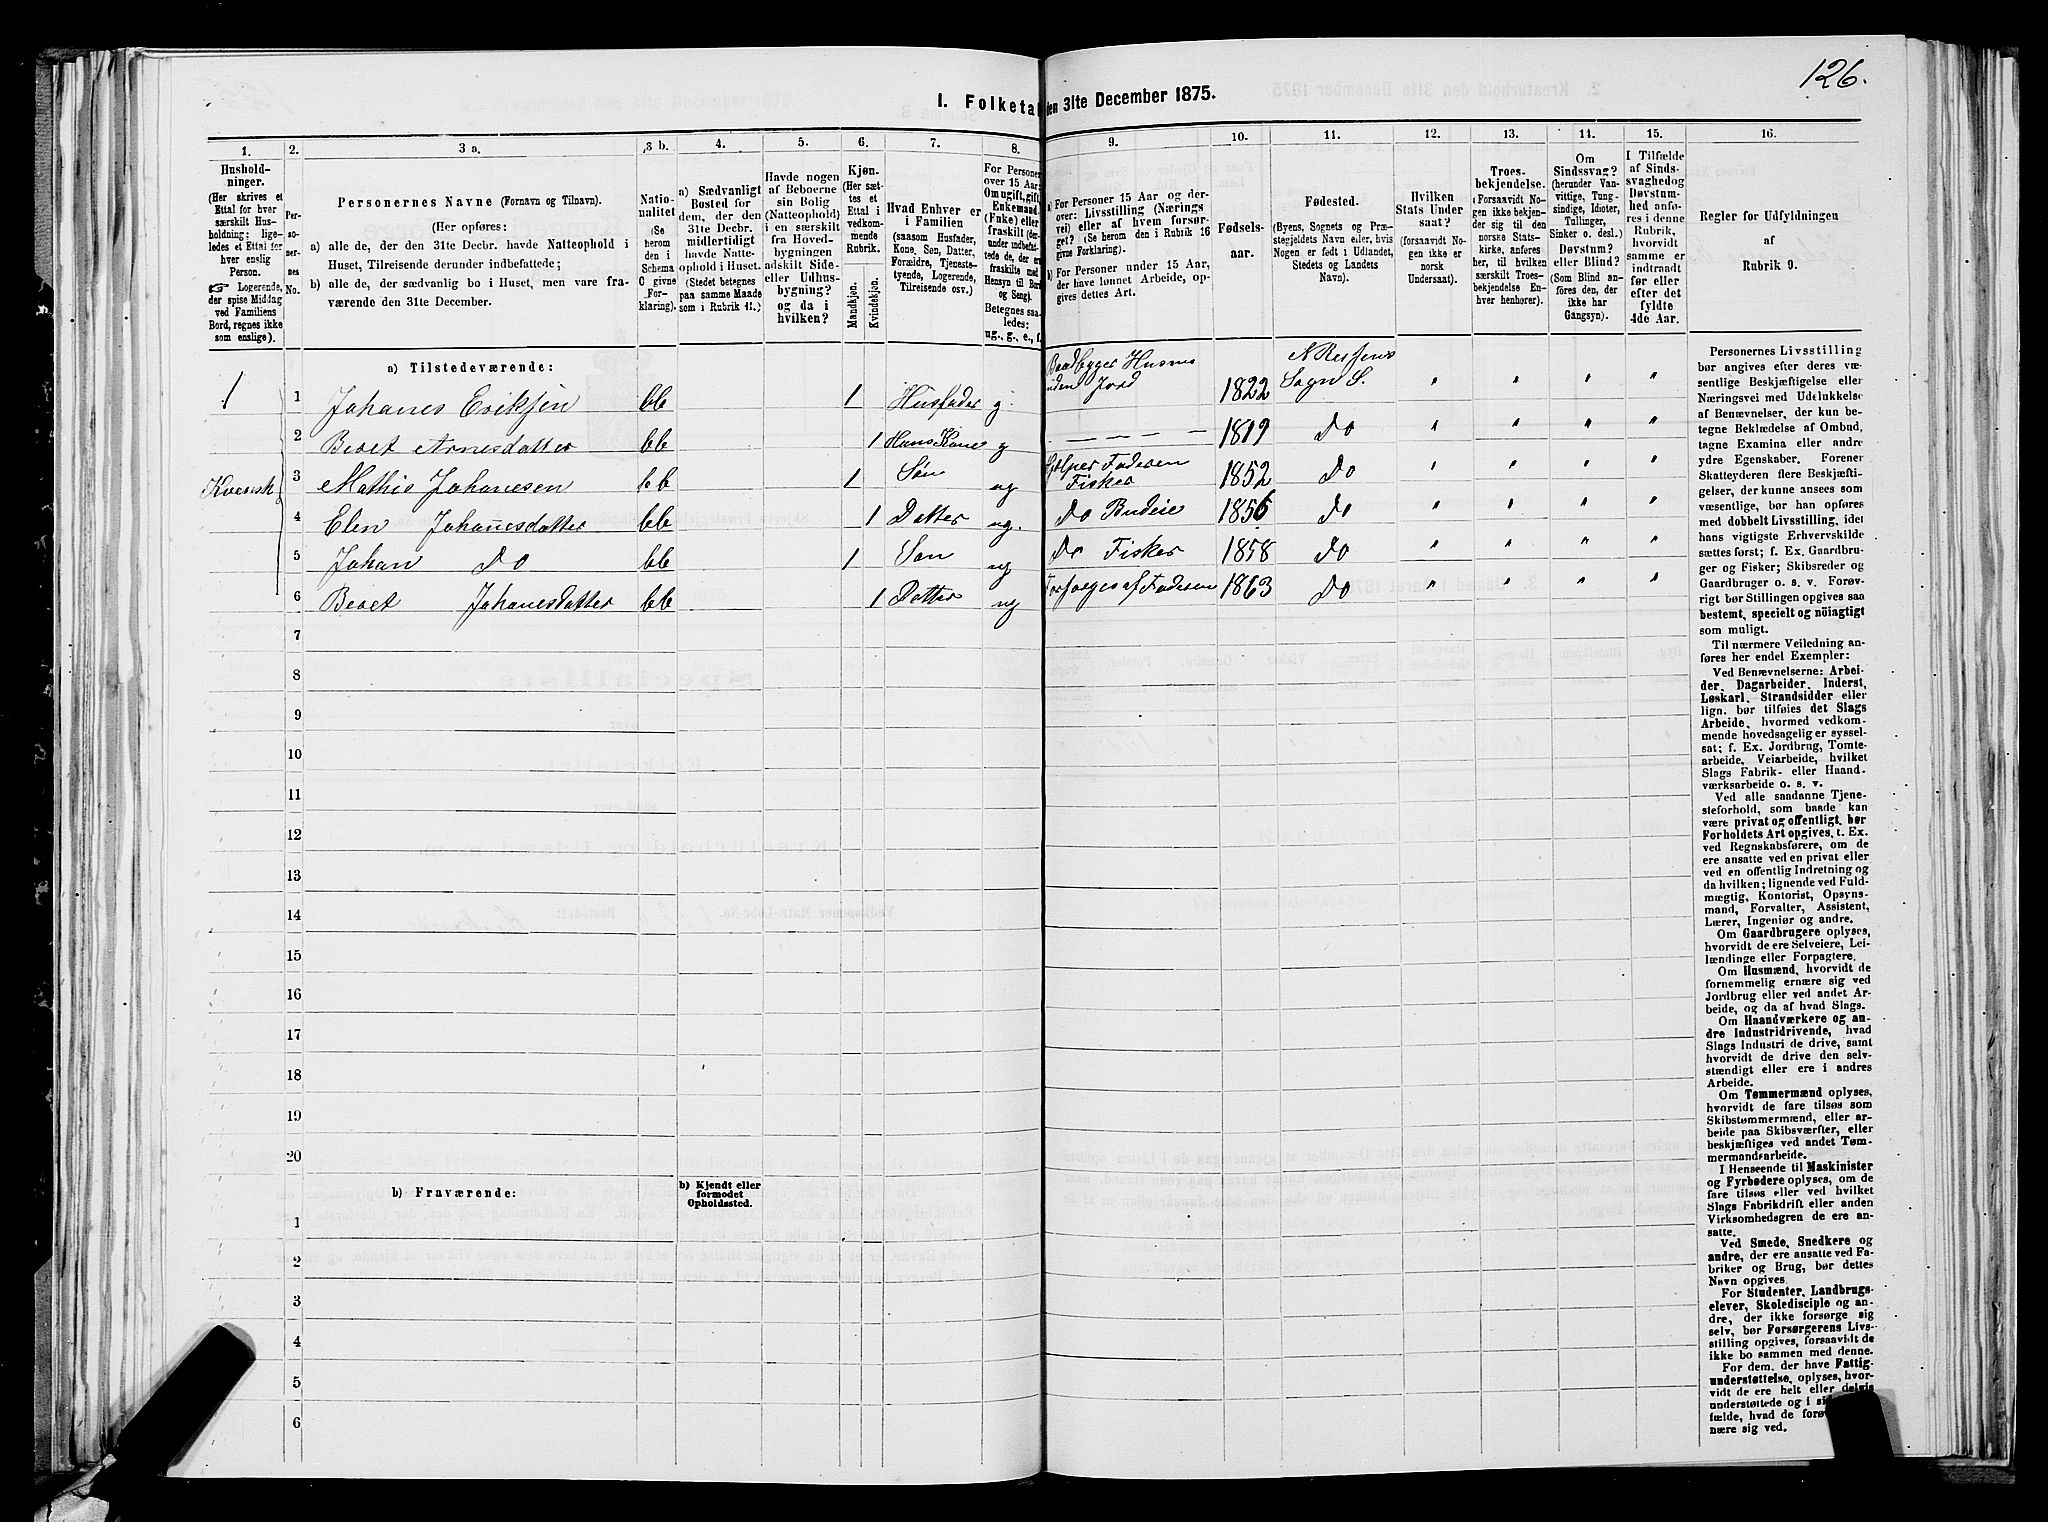 126.
I. Folketa
den 31te December 1875.
1. 2. 3 a. 3 b. 4. 5. 6. 7. 8. 9. 10. 11. 12. 13. 14. 15. 16.
Hushold-
ninger.
(Her skrives et
Ettal for hver
særskilt Hus-
holdning; lige-
ledes et Ettal for
hver enslig
Person.
☞ Logerende,
der spise Middag
ved Familiens
Bord, regnes ikke
som enslige).
Per-
so-
ner-
nes
No.
Personernes Navne (Fornavn og Tilnavn).
(Her opføres:
a) alle de, der den 31te Decbr. havde Natteophold i
Huset, Tilreisende derunder indbefattede;
b) alle de, der sædvanlig bo i Huset, men vare fra-
værende den 31te December.
Natio-
nalitet
(Se
herom
den i
Schema
C givne
For-
klaring).
a) Sædvanligt
Bosted for
dem, der den
31te Decbr.
midlertidigt
havde Natte-
ophold i Huset.
(Stedet betegnes
paa samme Maade
som i Rubrik 11.)
Havde nogen
af Beboerne
sin Bolig
(Natteophold)
i en særskilt
fra Hoved-
bygningen
adskilt Side-
eller Udhus-
bygning?
og da i
hvilken?
Kjøn.
(Her sæt-
tes et
Ettal i
vedkom-
mende
Rubrik.
Mandkjøn.
Kvindekjøn.
Hvad Enhver er
i Familien
(saasom Husfader,
Kone, Søn, Datter,
Forældre, Tjeneste-
tyende, Logerende,
Tilreisende osv.)
For Personer
over 15 Aar:
Om ugift, gift,
Enkemand
(Enke) eller
fraskilt (der-
under indbefat-
tede de, der ere
fraskilte med
Hensyn til Bord
og Seng).
Betegnes saa-
ledes:
ug., g., e., f.
a) For Personer 15 Aar og der-
over: Livsstilling (Nærings-
vei) eller af hvem forsør-
get? (Se herom den i Rubrik 16
givne Forklaring).
b) For Personer under 15 Aar,
der have lønnet Arbeide, op-
gives dettes Art.
Fødsels-
aar.
Fødested.
(Byens, Sognets og Præ-
stegjeldets Navn eller, hvis
Nogen er født i Udlandet,
Stedets og Landets
Navn).
Hvilken
Stats Under-
saat?
(forsaavidt No-
gen ikke er
norsk
Undersaat).
Troes-
bekjendelse.
(Forsaavidt No-
gen ikke bekjen-
der sig til den
norske Stats-
kirke, anføres
her, til hvilken
særskilt Troes-
bekjendelse En-
hver henhører).
Om
Sindssvag?
(herunder Van-
vittige, Tung-
sindige, Idioter,
Tullinger,
Sinker o. desl.)
Døvstum?
eller Blind?
(Som Blind an-
føres den, der
ikke har
Gangsyn).
I Tilfælde
af Sinds-
svaghed og
Døvstum-
hed anfø-
res i denne
Rubrik,
hvorvidt
samme er
indtraadt
før eller
efter det
fyldte
4de Aar.
Regler for Udfyldningen
af
Rubrik 9.
a) Tilstedeværende:
1 1 Johanes Eriksen bb 1 Husfader g. Baadbygger Husm uden Jord 1822 N Reisens Sogn S. " " " "
2 Beret Arnesdatter bb 1 Hans Kone g — — — — 1819 Do " " " "
Kvensk 3 Mathis Johanesen bb 1 Søn ug Hjelper Faderen Fisker 1852 Do " " " "
4 Elen Johanesdatter bb 1 Datter ug. Do Budeie 1856 Do " " " "
5 Johan Do bb 1 Søn ug Do Fisker 1858 Do " " " "
6 Beret Johanesdatter bb 1 Datter ug Forsørges af Faderen 1863 Do " " " "
7
8
9
10
11
12
13
14
15
16
17
18
19
20
b) Fraværende:
b) Kjendt eller
formodet
Opholdssted.
1
2
3
4
5
6
Personernes Livsstilling
bør angives efter deres væ-
sentlige Beskjæftigelse eller
Næringsvei med Udelukkelse
af Benævnelser, der kun be-
tegne Beklædelse af Ombud,
tagne Examina eller andre
ydre Egenskaber. Forener
Skatteyderen flere Beskjæfti-
gelser, der kunne ansees som
væsentlige, bør han opføres
med dobbelt Livsstilling, idet
hans vigtigste Erhvervskilde
sættes først; f. Ex. Gaardbru-
ger og Fisker; Skibsreder og
Gaardbruger o. s. v. Forøv-
rigt bør Stillingen opgives saa
bestemt, specielt og nöiagtigt
som muligt.
Til nærmere Veiledning an-
føres her endel Exempler:
Ved Benævnelserne: Arbei-
der, Dagarbeider, Inderst,
Løskarl, Strandsidder eller
lign. bør tilføies det Slags
Arbeide, hvormed vedkom-
mende hovedsagelig er syssel-
sat; f. Ex. Jordbrug, Tomte-
arbeide, Veiarbeide, hvilket
Slags Fabrik- eller Haand-
værksarbeide o. s. v.
Ved alle saadanne Tjene-
steforhold, som baade kan
være privat og offentligt, bør
Forholdets Art opgives, t. Ex.
ved Regnskabsførere, om de
ere ansatte ved en privat eller
ved en offentlig Indretning og
da hvilken; lignende ved Fuld-
mægtig, Kontorist, Opsyns-
mand, Forvalter, Assistent,
Lærer, Ingeniør og andre.
Om Gaardbrugere oplyses,
hvorvidt de ere Selveiere, Lei-
lændinge eller Forpagtere.
Om Husmænd, hvorvidt de
fornemmelig ernære sig ved
Jordbrug eller ved andet Ar-
beide, og da af hvad Slags.
Om Haandværkere og an-
dre Industridrivende, hvad
Slags Industri de drive, samt
hvorvidt de drive den selv-
stændigt eller ere i andres
Arbeide.
Om Tømmermænd oplyses,
hvorvidt de fare tilsøs som
Skibstømmermænd, eller ar-
beide paa Skibsværfter, eller
beskjæftiges ved andet Tøm-
mermandsarbeide.
I Henseende til Maskinister
og Fyrbødere oplyses, om de
fare tilsøs eller ved hvilket
Slags Fabrikdrift eller anden
Virksomhedsgren de ere an-
satte.
Ved Smede, Snedkere og
andre, der ere ansatte ved Fa-
briker og Brug, bør dettes
Navn opgives.
For Studenter, Landbrugs-
elever, Skoledisciple og an-
dre, der ikke forsørge sig
selv, bør Forsørgerens Livs-
stilling opgives, forsaavidt de
ikke bo sammen med denne.
For dem, der have Fattig-
understøttelse, oplyses, hvor-
vidt de ere helt eller delvis
understøttede og i si
fælde, hvad de forø
nære sig ved.